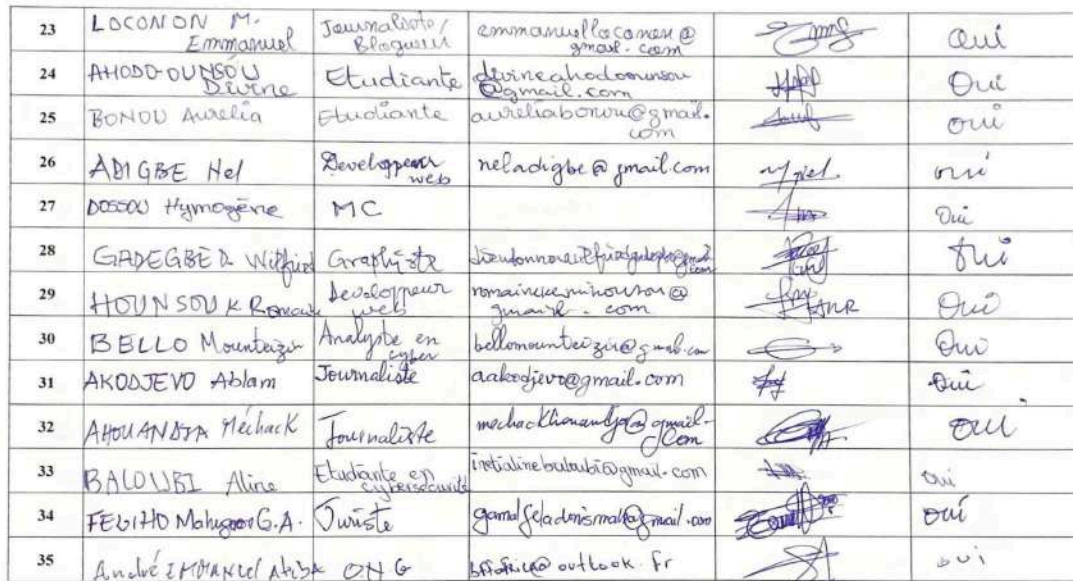 23 LOCONON M. Emmanuel Journaliste/ Blogueur emmanuelloconon@ gmail.com Oui
24 AHODO-OUNSOU Divine Etudiante divineahodoounsou @gmail.com Oui
25 BONOU Aurelia Etudiante aureliabonou@gmail. com oui
26 ADIGBE Nel Developpeur web neladigbe@gmail.com oui
27 DOSSOU Hymogène MC Oui
28 GADEGBE D. Wilfried Graphiste Oui
29 HOUNSOU K Romain Developpeur web gmail.com Oui
30 BELLO Mounteizir Analyste en cyber bellomounteizir@gmail.com Oui
31 AKODJEVO Ablam Journaliste aakodjevo@gmail.com Oui
32 AHOUANDJA Méchack Journaliste mechackhouandja@gmail. Com OUI
33 BALOUBI Aline Etudiante en cybersecurité oui
34 FELIHO G.A. Juriste oui
35 André ONG outlook.fr oui